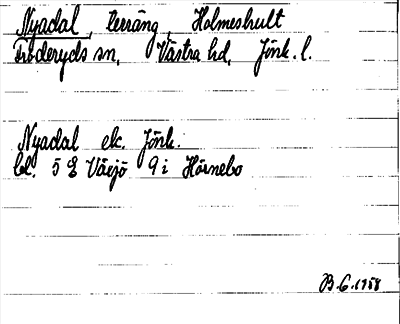 Nyadal, terräng, Holmeshult
Fröderyds sn, Västra hd, Jönk. l.
Nyadal ek. Jönk.
bl. 5 Ö Växjö 9 i Hörnebo
B. G. 1958